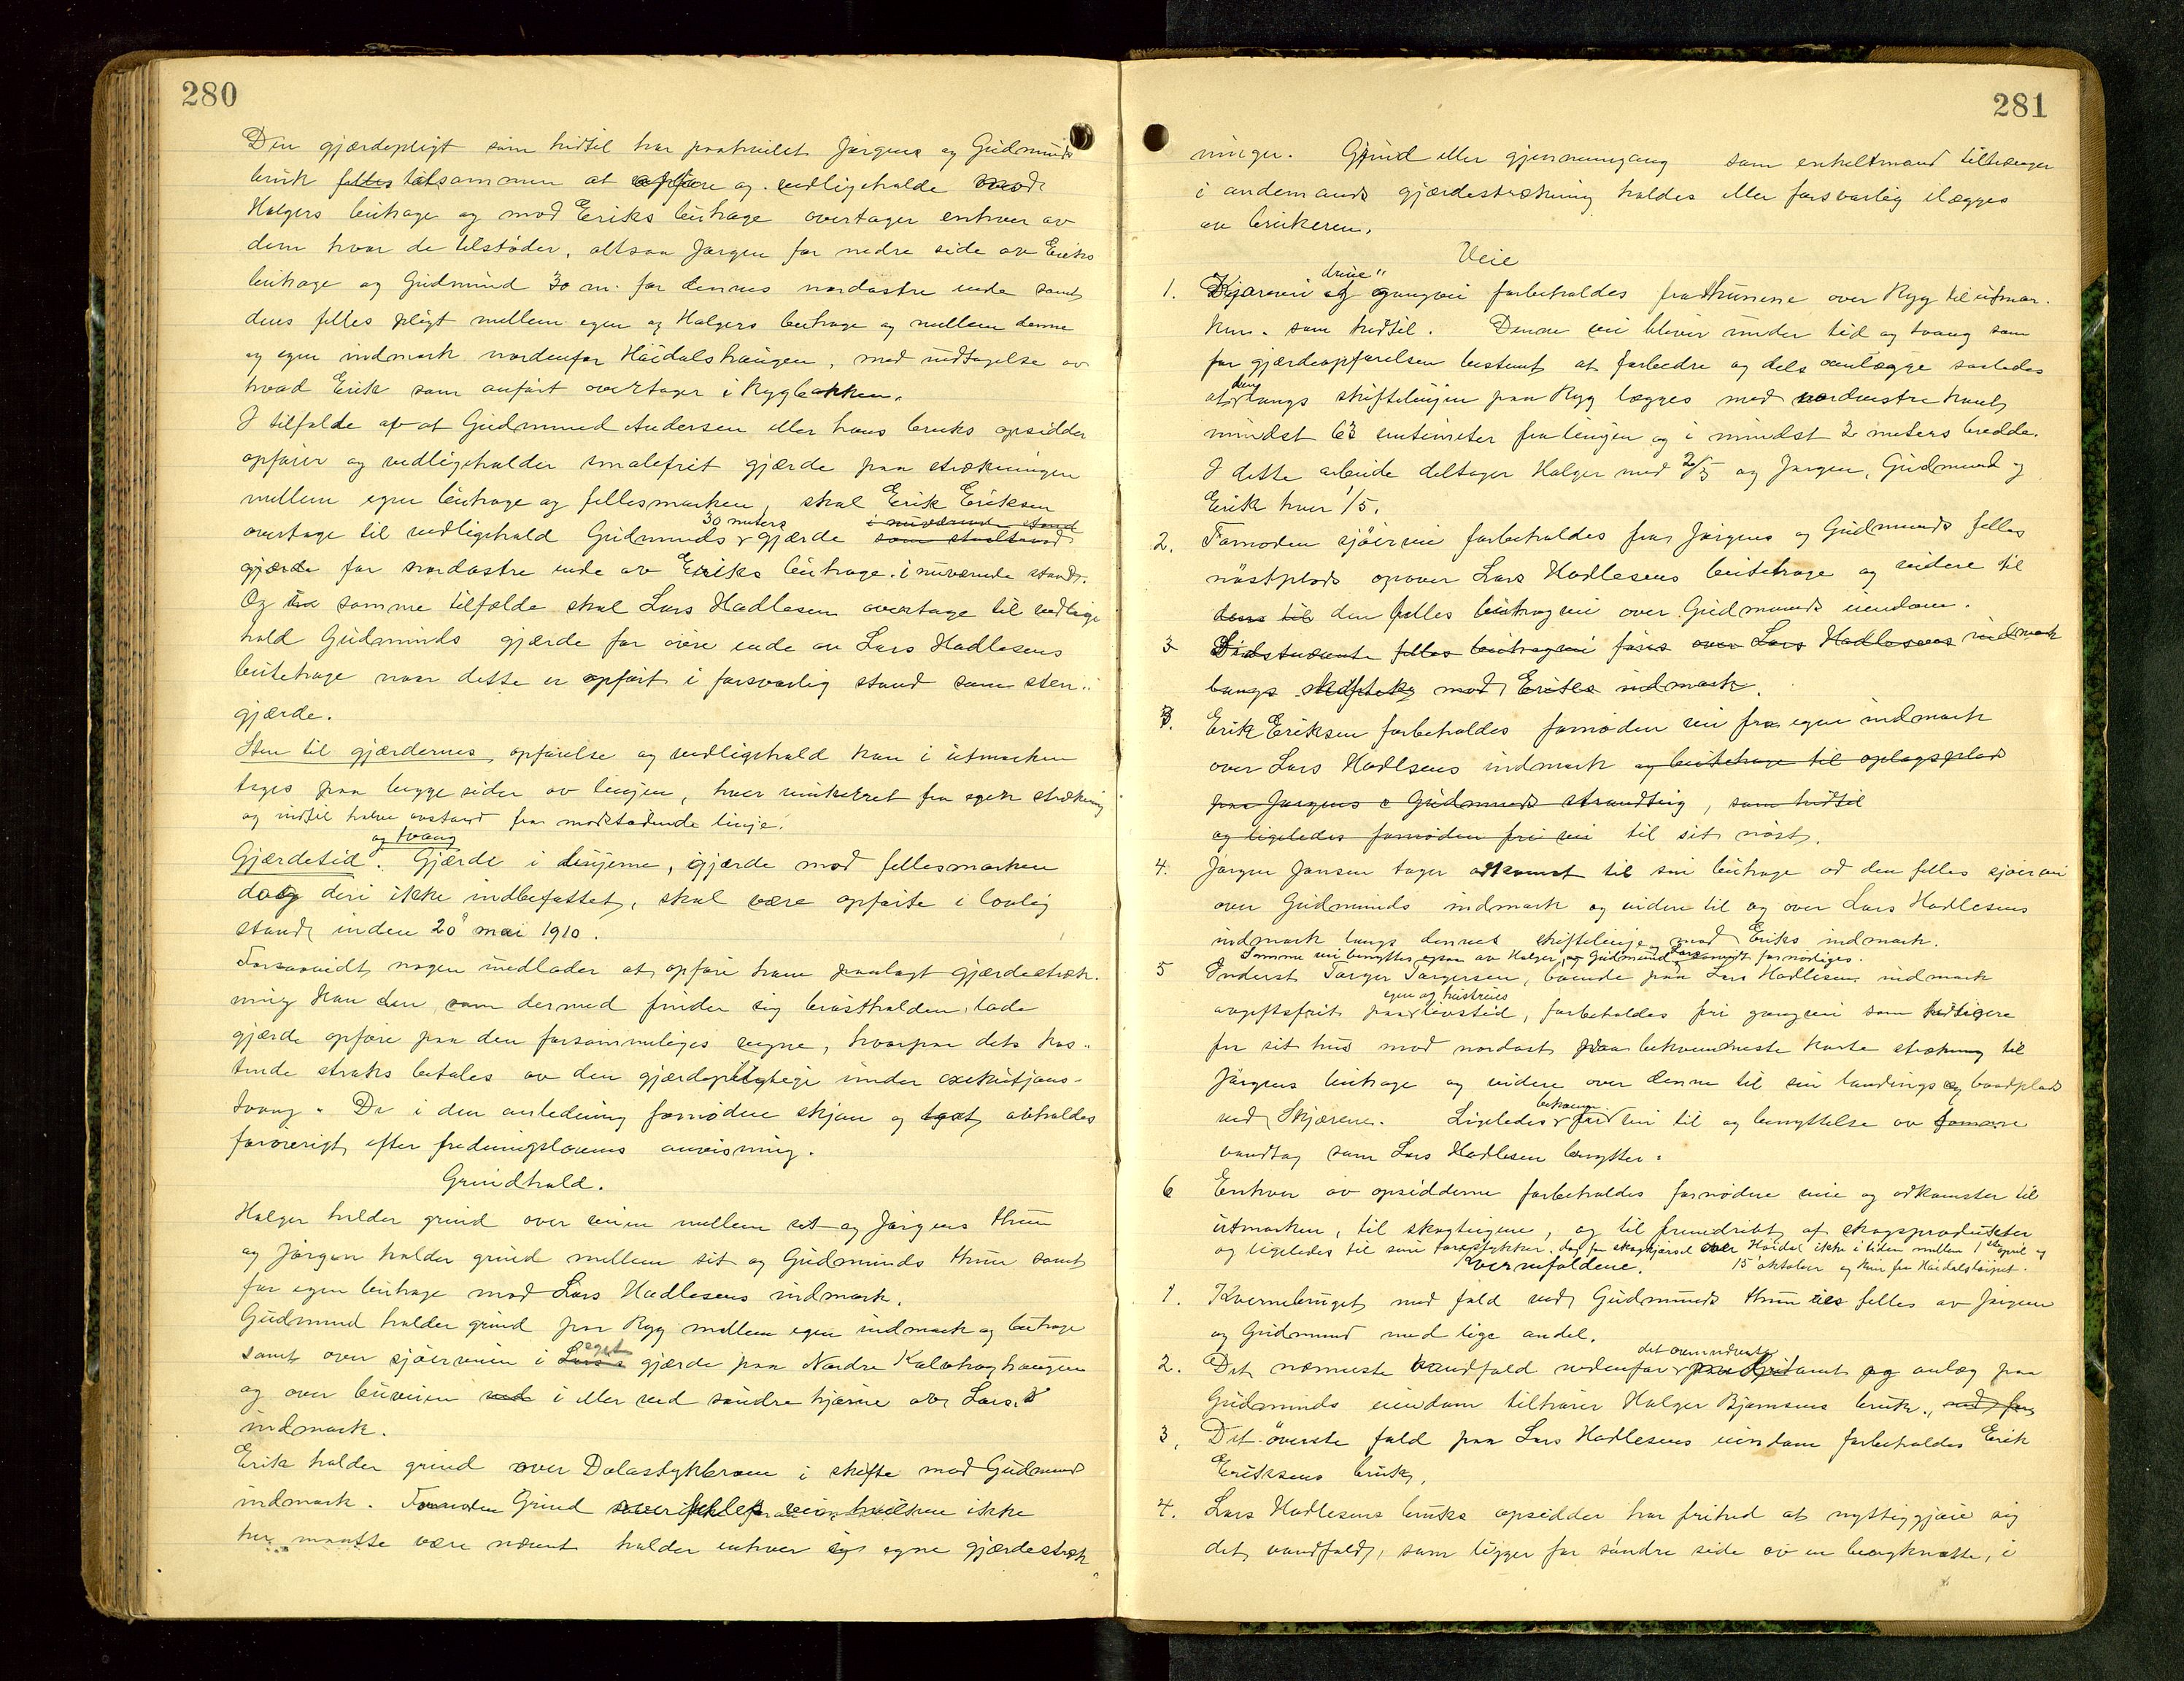 280
Den gjærdepligt som hidtil har paahvilet Jørgens og Gudmunds
bruk felles tilsammen at opføre og vedligeholde mod
Holgers beitrage og mod Eriks beitrage overtager enhver av
dem hvor de tilstøder, altsaa Jørgen for nedre side av Eriks
beitrage og Gudmund 30 m. for dennes nordøstre ende samt
dens felles pligt mellem egen og Holgers beitrage og mellem denne
og egen indmark nordenfor Höidalshaugen, med undtagelse av
hvad Erik som anført overtager i Rygbakken.
I tilfælde af at Gudmund Andersen eller hans bruks opsidder
opfører og vedligeholder smalefrit gjærde paa strækningen
mellem egen beitrage og fellesmarken, skal Erik Eriksen
30 meters i nuværende stand
overtage til vedligehold Gudmunds gjærde som
gjærde for nordøstre ende av Eriks beitrage i nuværende stand.
Og i samme tilfælde skal Lars Hadlesen overtage til vedlige
hold Gudmunds gjærde for øvre ende av Lars Hadlesens
beitehage naar dette er opført i forsvarlig stand som sten-
gjærde.
Sten til gjærdernes opførelse og vedligehold kan i utmarken
tages paa begge sider av linjen, hver enkeltret fra egen strækning
og indtil halve avstand fra motstødende linje.
og tvang
Gjærdetid. Gjærde i linjerne, gjærde mod fellesmarken
dog deri ikke indbefattet, skal være opførte i lovlig
stand inden 20 mai 1910.
Forsaavidt nogen undlader at opføre ham paalagt gjærdestræk-
ning kan den, som dermed finder sig brøstholden, lade
gjærde opføre paa den forsømmeliges regne, hvorpaa dets kos-
tende straks betales av den gjærdepligtige under exekutjons-
tvang. De i den anledning fornødne skjøn og takst avholdes
forøvrigt efter fredningslovens anvisning.
Grindhold.
Holger holder grind over veien mellem sit og Jørgens thun
og Jørgen holder grind mellem sit og Gudmunds thun samt
for egen beitrage mod Lars Hadlesens indmark.
Gudmund holder grind paa Ryg mellem egen indmark og beitrage
eget
samt over sjöerveien i Lars's gjærde paa Nordre Kalvhaghaugen
og over buveien ved i eller ved søndre hjørne av Lars's
indmark.
Erik holder grind over Dalastykbroen i skifte med Gudmunds
indmark. Fornøden Grind over felles veie, hvilken ikke
her maatte være nævnt holder enhver i egne gjærdestræk
281
ninger. Grind eller gjennemgang som enkeltmand tiltrænger
i andenmands gjærdestrækning holdes eller forsvarlig ilægges
av brukeren.
Veie
drive"
1. Kjørevei og gangvei forbeholdes fra thunene over Ryg til utmar-
ken som hidtil. Denne vei bliver under tid og tvang som
for gjærdeopførelsen bestemt at forbedre og dels omlægge saaledes
den
at langs skiftelinjen paa Ryg lægges med nordvestre kant
mindst 63 centimeter fra linjen og i mindst 2 meters bredde.
I dette arbeide deltager Holger med 2/5 og Jørgen, Gudmund og
Erik hver 1/5.
2. Fornøden sjöervei forbeholdes fra Jørgens og Gudmunds felles
nöstplads opover Lars Hadlesens beitehage og videre til
dens til den felles beitragvei over Gudmunds eiendom.
3 Sidstnævnte felles beitragvei føres over Lars Hadlesens indmark
langs skifteke mod Eriks indmark.
3. Erik Eriksen forbeholdes fornøden vei fra egen indmark
over Lars Hadlesens indmark og beitehage til oplagsplads
paa Jørgens & Gudmunds strandteig, som hidtil
og ligeledes fornøden fri vei til sit nöst.
4. Jørgen Jansen tager adkomst til sin beitrage ad den felles sjöervei
over Gudmunds indmark og videre til og over Lars Hadlesens
indmark langs dennes skiftelinje mod Eriks indmark.
Samme vei benyttes ogsaa av Holger, og Gudmund og Lars saavidt fornødiges.
5 Inderst Torger Torgersen, boende paa Lars Hadlesens indmark
egen og hustrues
avgiftsfrit paa livstid, forbeholdes fri gangvei som tidligere
fra sit hus mod nordost paa bekvemmeste korte strækning til
Jørgens beitrage og videre over denne til sin landings og baadplads
bekvem
ved Skjærene. Ligeledes fri vei til og benyttelse av samme
vandtag som Lars Hadlesen benytter.
6 Enhver av opsidderne forbeholdes fornødne veie og adkomster til
utmarken, til skogteigene, og til fremdrift af skogsprodukter
og ligeledes til sine torvstykker. dog for skogkjørsel over Höidal ikke i tiden mellem 1ste april og
15 oktober og kun fra Höidalslöipet.
Kvernefaldene.
1. Kvernebruget med fald ved Gudmunds thun eies felles av Jørgen
og Gudmund med lige andel.
det ovennævnte
2. Det næmeste vandfald nedenfor samt og anlæg paa
Gudmunds eiendom tilhører Holger Bjørnsens bruk.
3, Det överste fald paa Lars Hadlesens eiendom forbeholdes Erik
Eriksens bruk.
4. Lars Hadlesens bruks opsidder har frihed at nyttiggjøre sig
det vandfald, som ligger for søndre side av en bergknatte, i